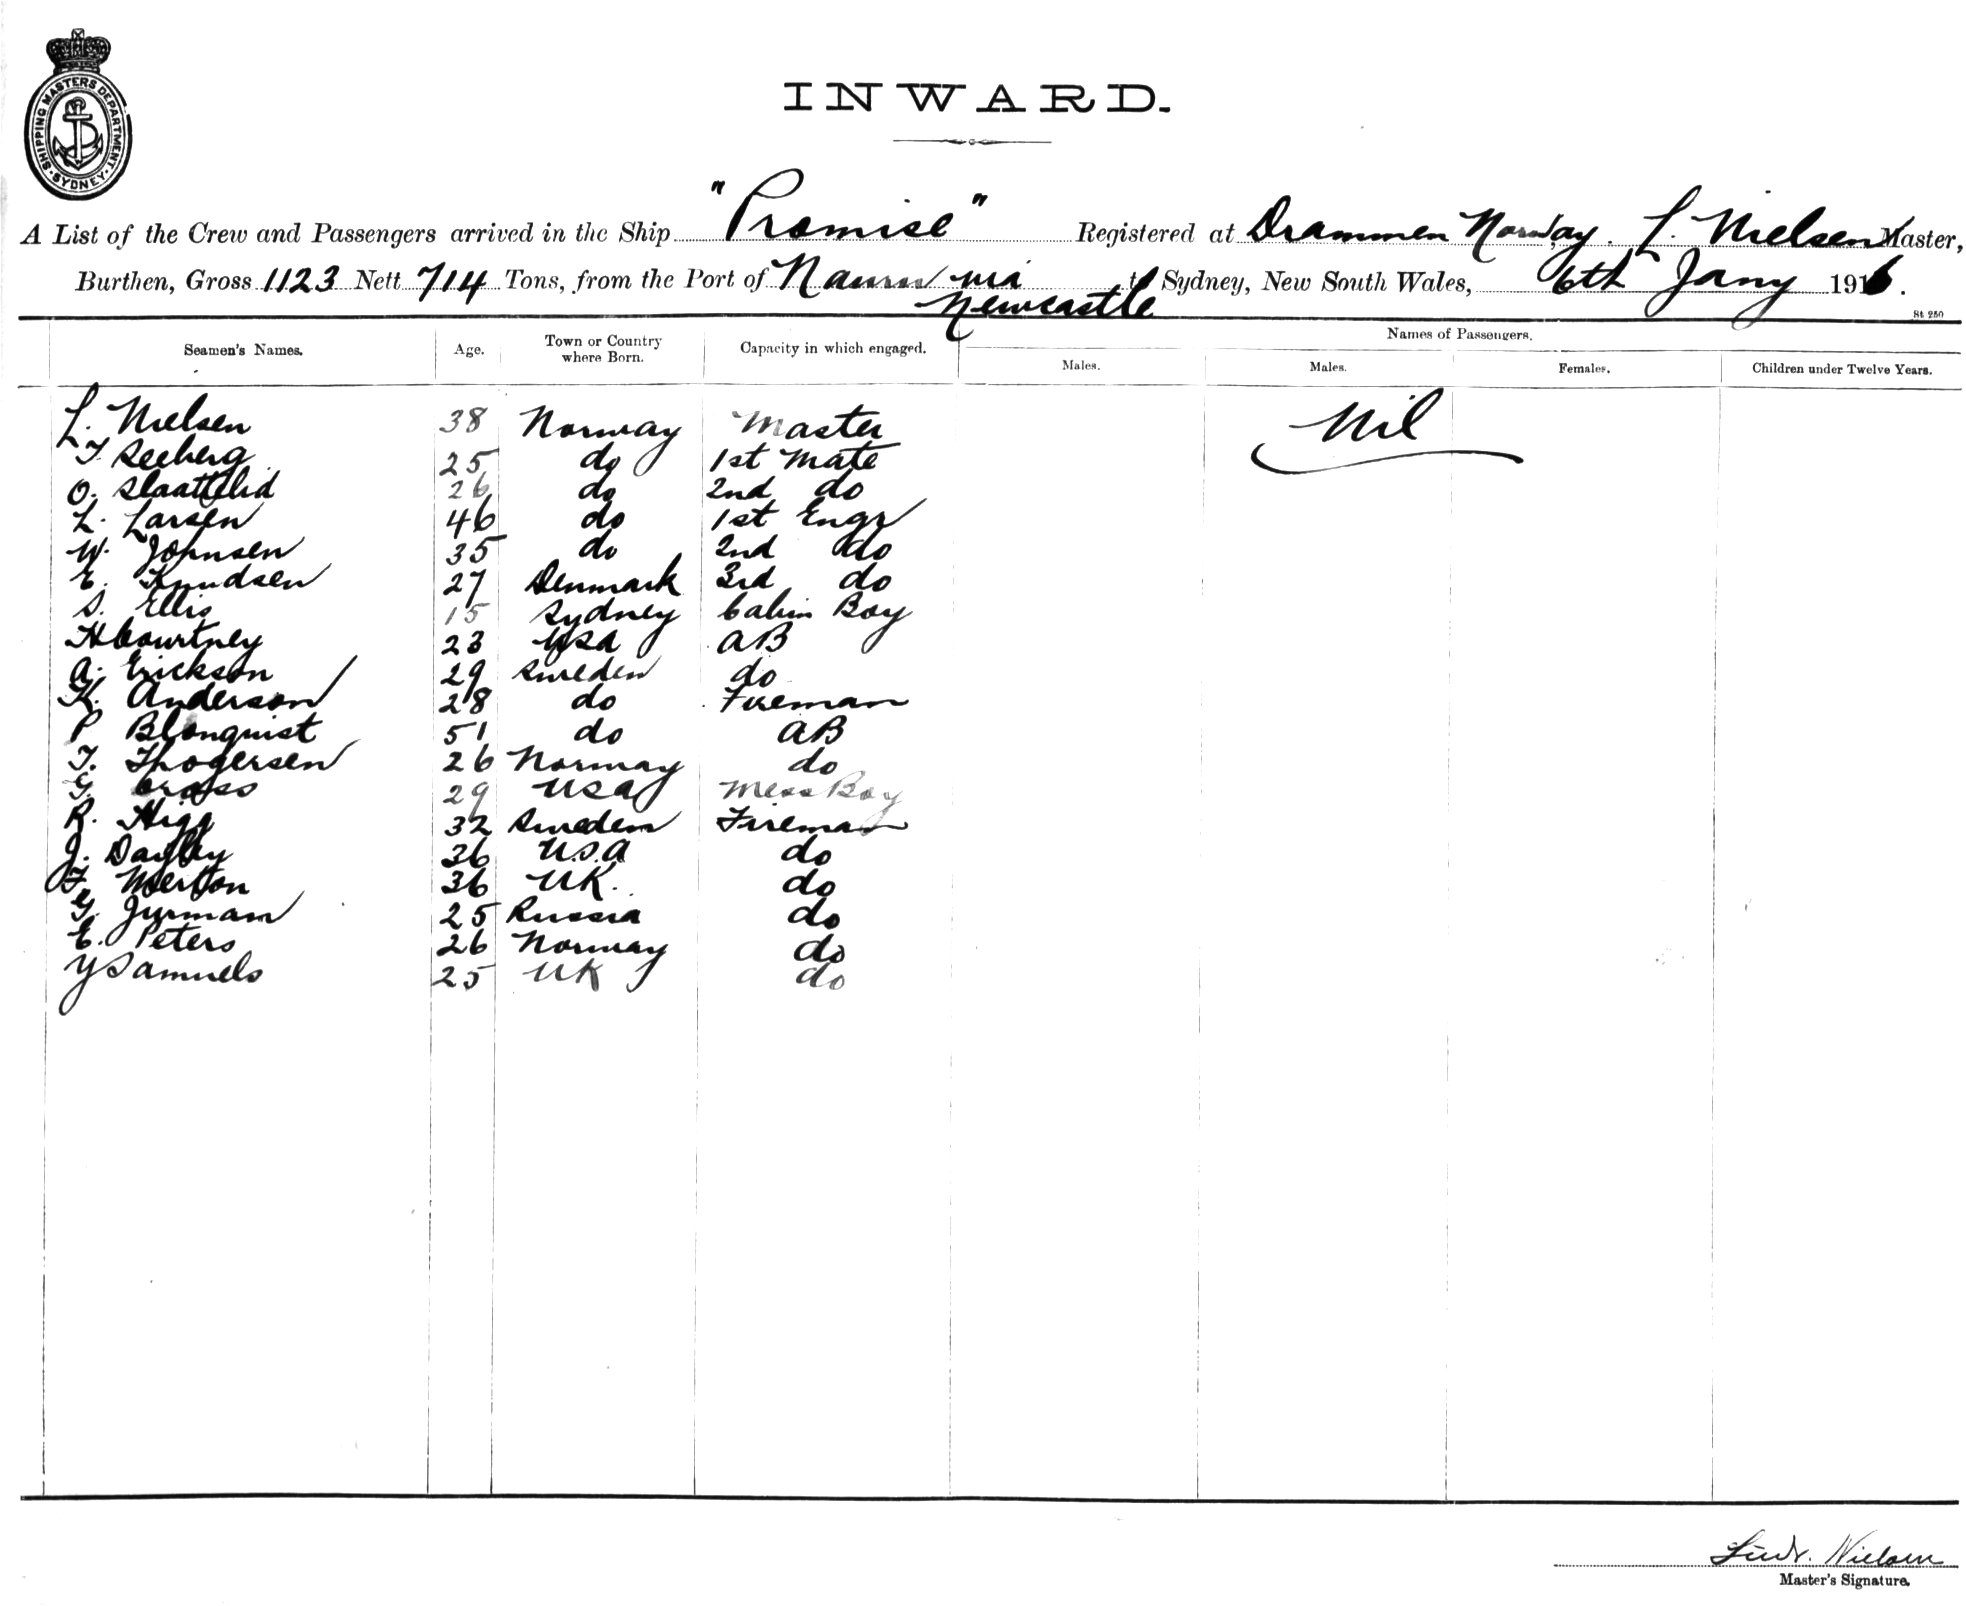 SHIPPING MASTERS DEPARTMENT · SYDNEY ·
INWARD.
A List of the Crew and Passengers arrived in the Ship "Promise" Registered at Drammen Norway. L. Nielsen Master,
Burthen, Gross 1123 Nett 714 Tons, from the Port of Nauru via Newcastle to Sydney, New South Wales, 6th Jany 1916.
St 250
Seamen's Names. Age. Town or Country where Born. Capacity in which engaged. Names of Passengers.
Males. Males. Females. Children under Twelve Years.
L. Nielsen 38 Norway Master Nil
T. Seeberg 25 do 1st Mate
O. Slaattelid 26 do 2nd do
L. Larsen 46 do 1st Engr
W. Johnsen 35 do 2nd do
E. Knudsen 27 Denmark 3rd do
S. Ellis 15 Sydney Cabin Boy
H Courtney 23 USA AB
A. Erickson 29 Sweden do
K. Anderson 28 do Fireman
P Blonquist 51 do AB
T. Thogersen 26 Norway do
G. Cross 29 USA Mess Boy
R. Higg 32 Sweden Fireman
J. Dayley 36 U.S.A do
F. Merton 36 UK. do
G. Jurmam 25 Russia do
E. Peters 26 Norway do
Y Samuels 25 UK do
Nielsen
Master's Signature.